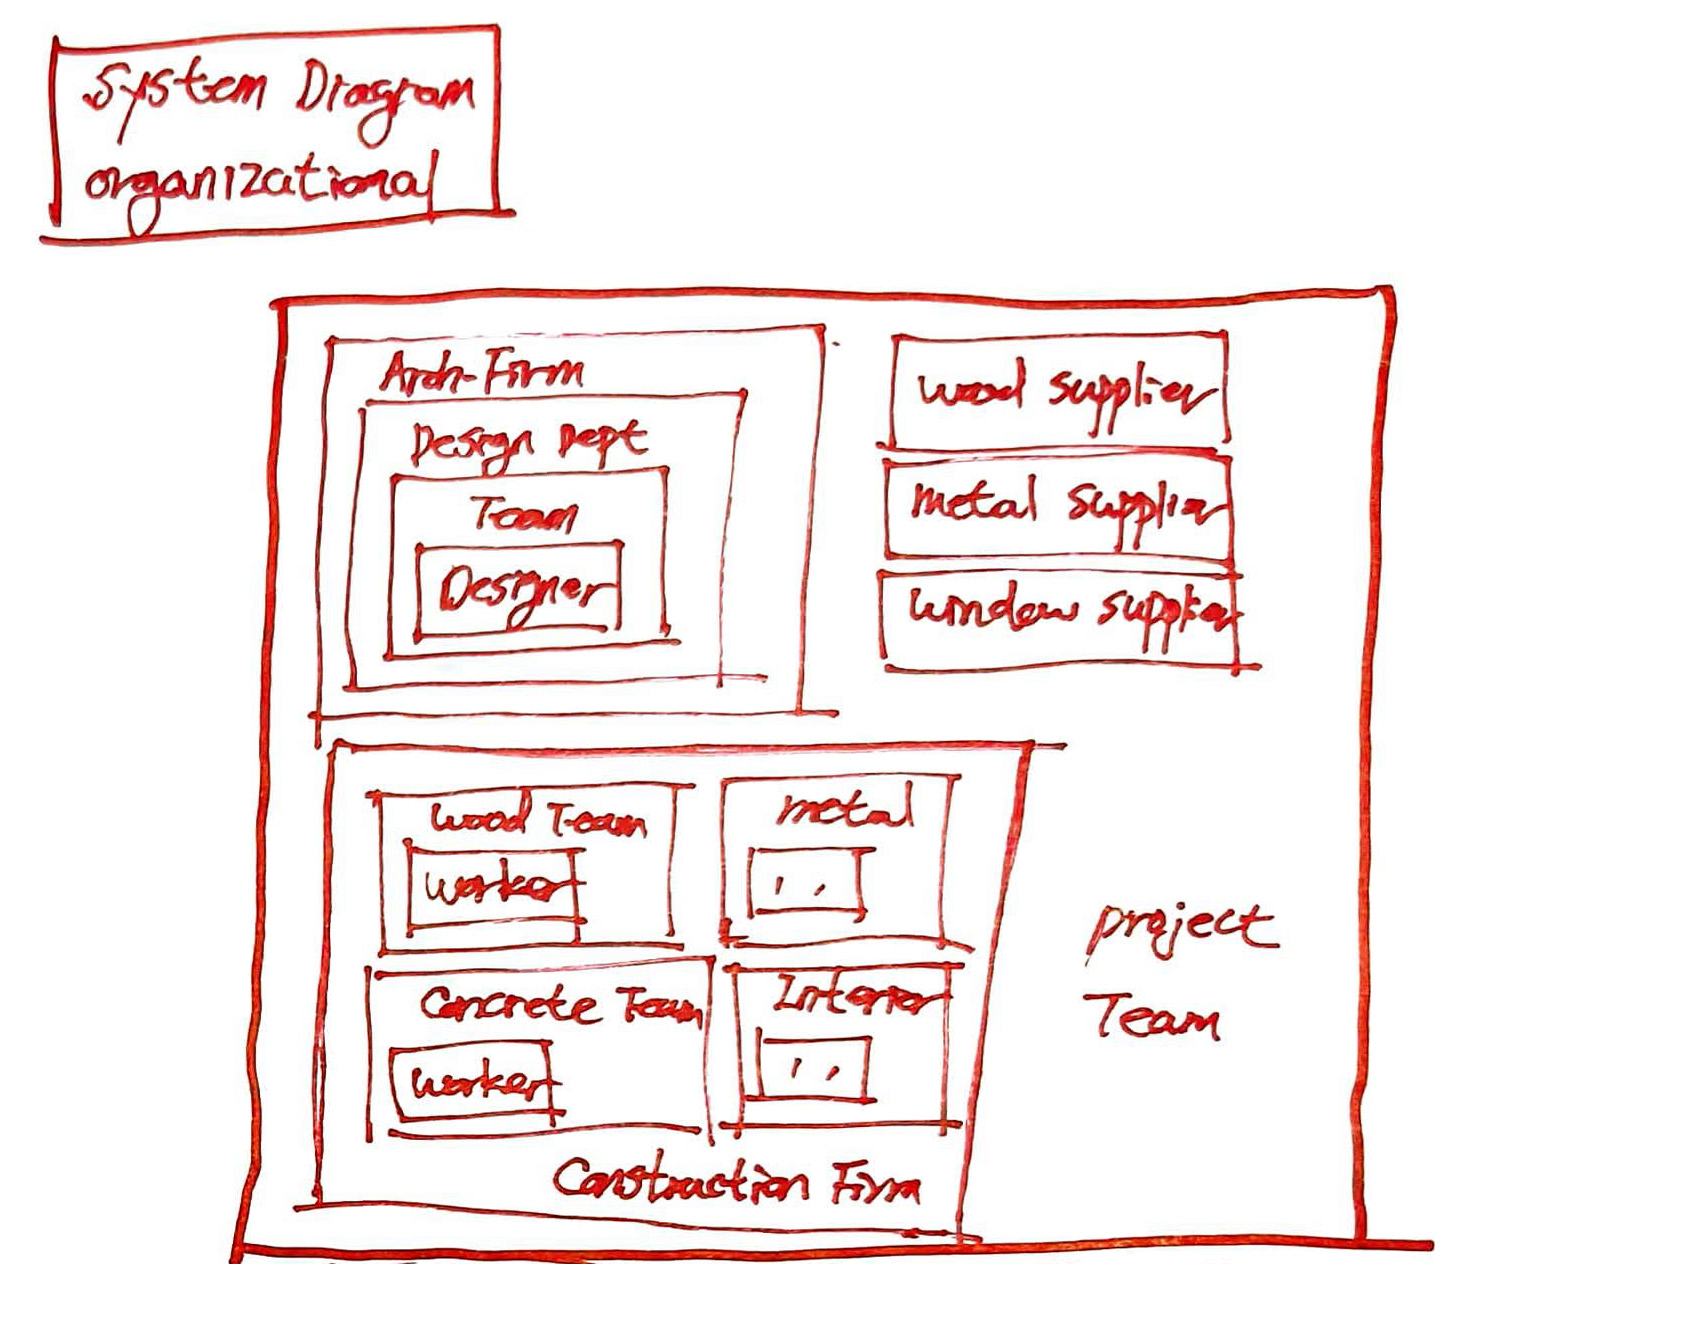 System Diagram
organizational
Arch-Firm
Design Dept
Team
Designer
wood supplier
metal supplier
window supplier
wood Team
worker
metal
, ,
Concrete Team
worker
Interior
, ,
Construction Firm
project
Team